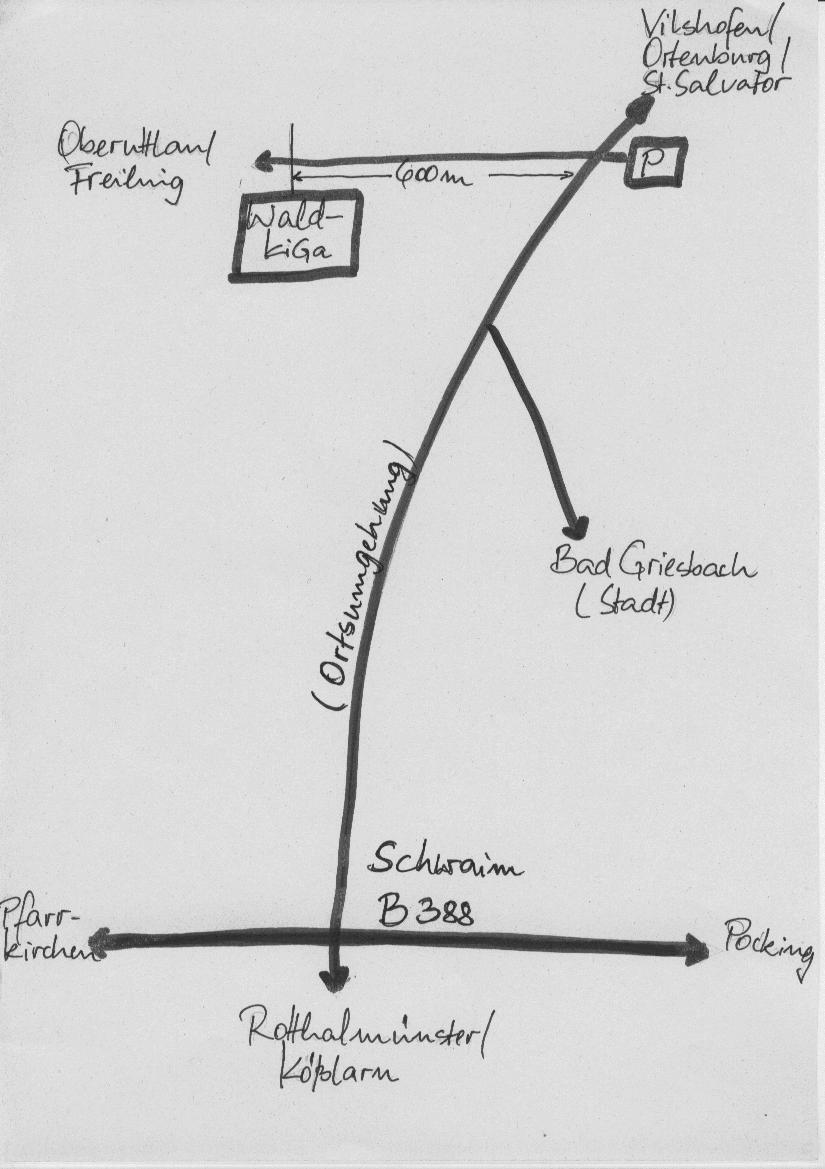 Vilshofen/
Ortenburg/
St. Salvator
Oberuttlau/
Freiling
P
600m
Wald-
kiGa
(Ortsumgehung)
Bad Griesbach
(Stadt)
Schwaim
B 388
Pfarr-
kirchen
Pocking
Rotthalmünster/
Kößlarn